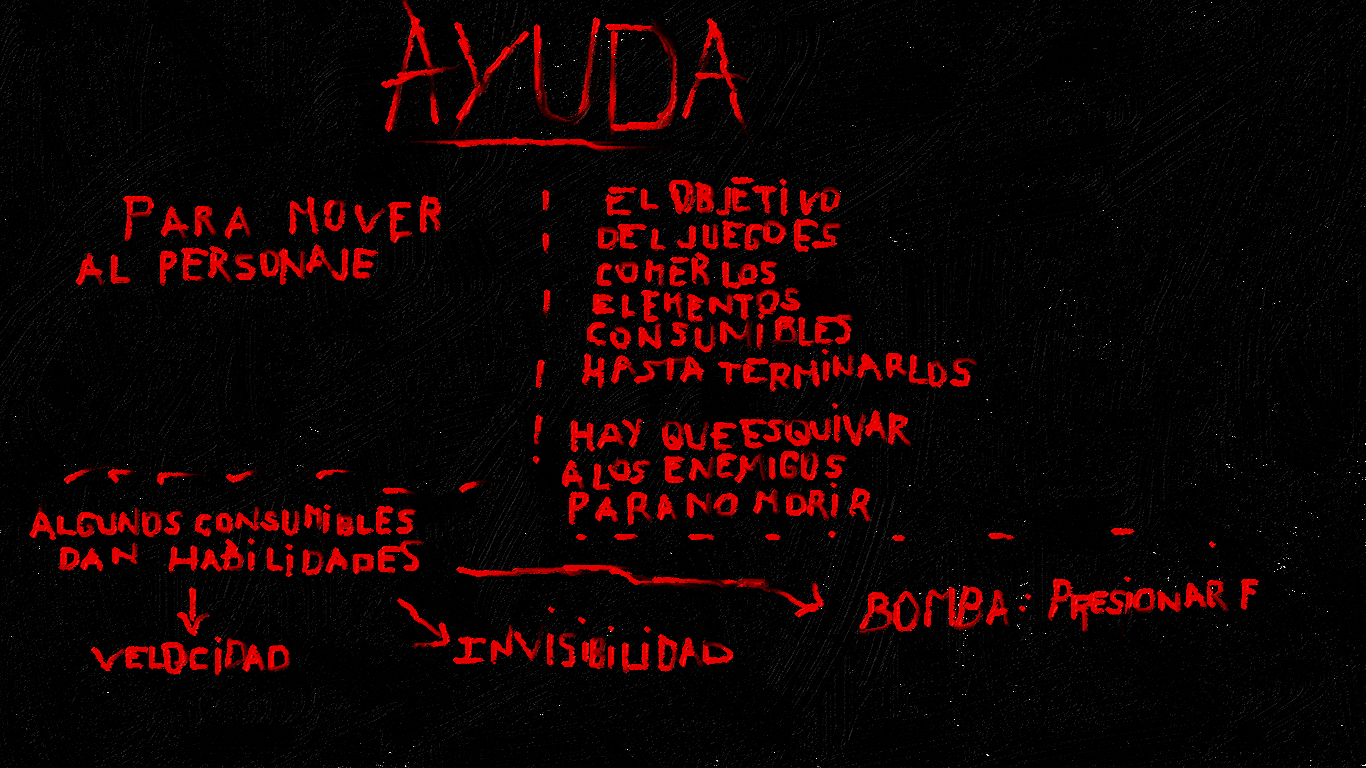 AYUDA
PARA MOVER
AL PERSONAJE
EL OBJETIVO
DEL JUEGO ES
COMER LOS
ELEMENTOS
CONSUMIBLES
HASTA TERMINARLOS
HAY QUE ESQUIVAR
A LOS ENEMIGOS
PARA NO MORIR
ALGUNOS CONSUMIBLES
DAN HABILIDADES
VELOCIDAD
INVISIBILIDAD
BOMBA: PRESIONAR F